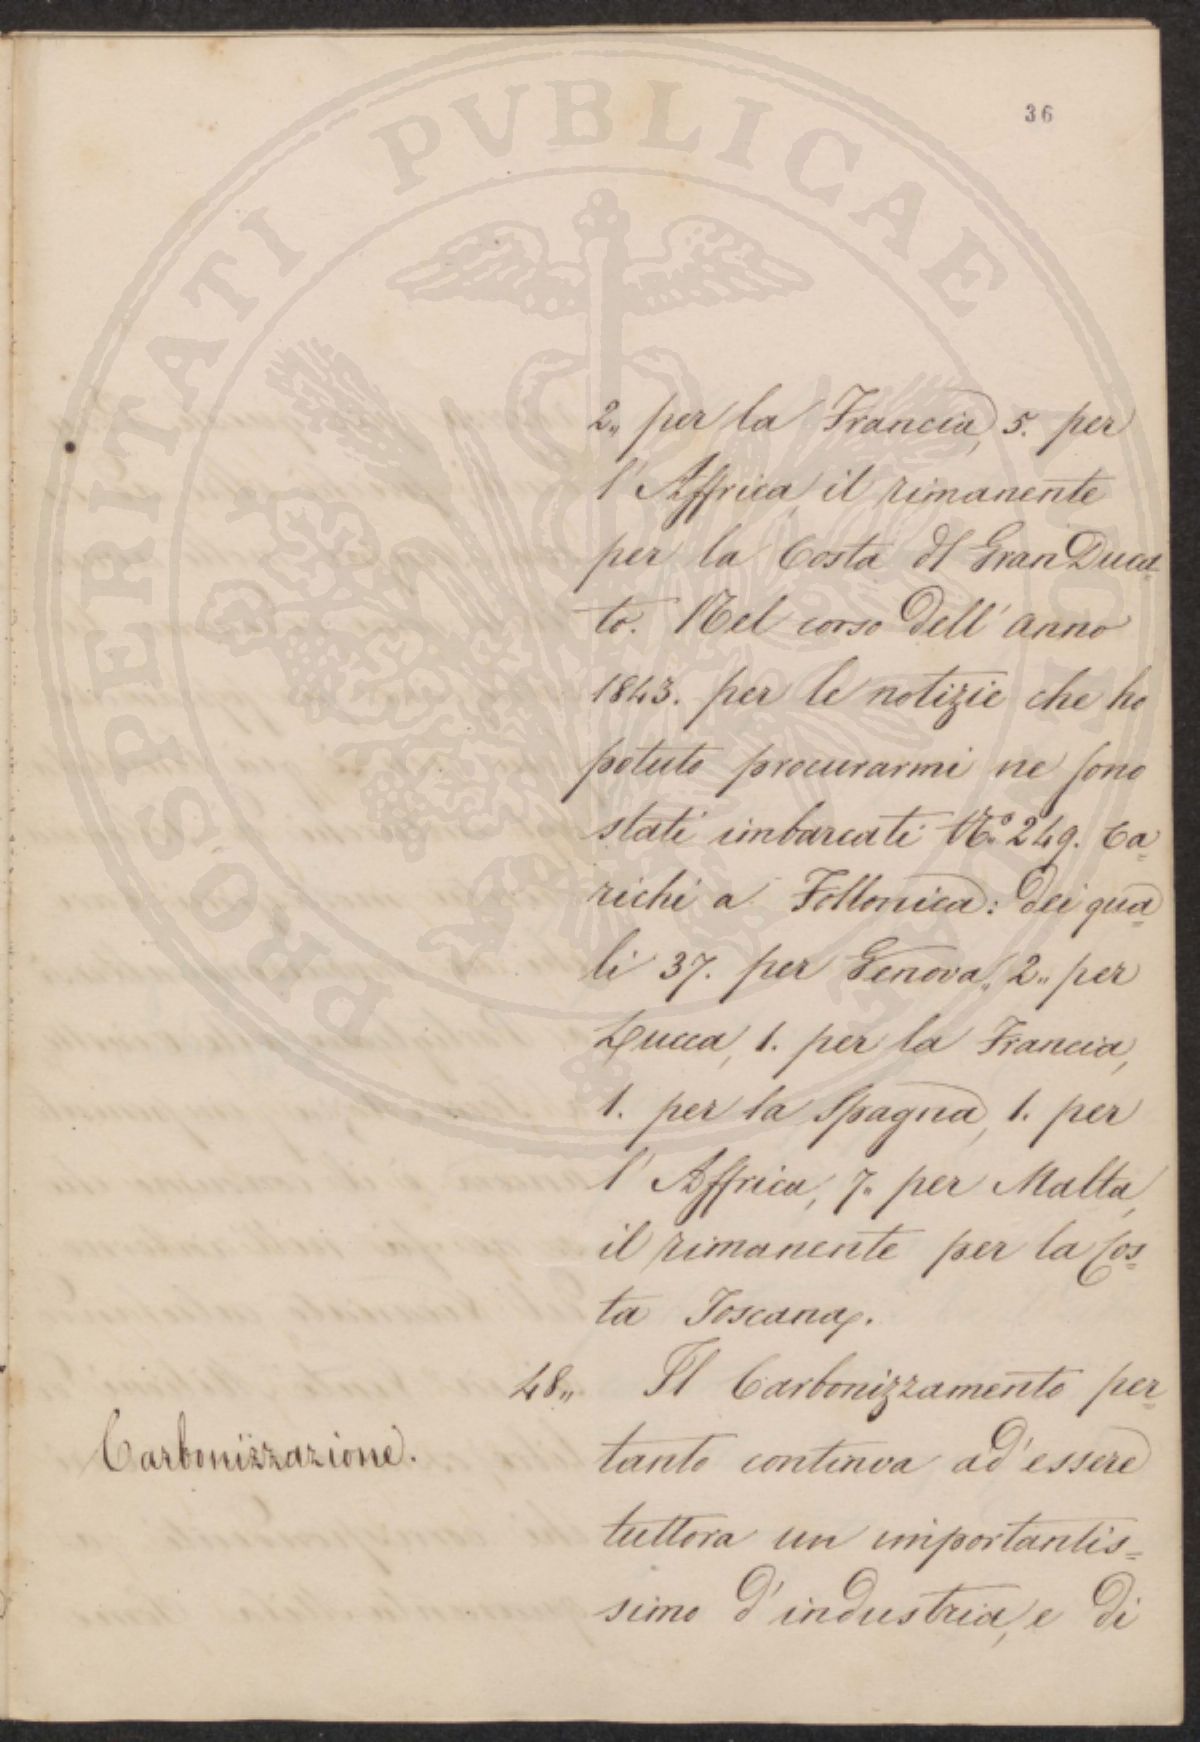 36
2,, per la Francia, 5. per
l'Affrica, il rimanente
per la Costa del Gran Duca=
to. Nel corso dell'anno
1843. per le notizie che ho
potuto procurarmi ne sono
stati imbarcati N.º 249. Ca=
richi a Follonica: dei qua=
li 37. per Genova, 2,, per
Lucca, 1. per la Francia,
1. per la Spagna, 1. per
l'Affrica, 7,, per Malta,
il rimanente per la Cos=
ta Toscana.
48,, Il Carbonizzamento per=
Carbonizzazione.
tanto continua ad'essere
tuttora un importantis=
simo d'industria, e di
PROSPERITATI PVBLICAE